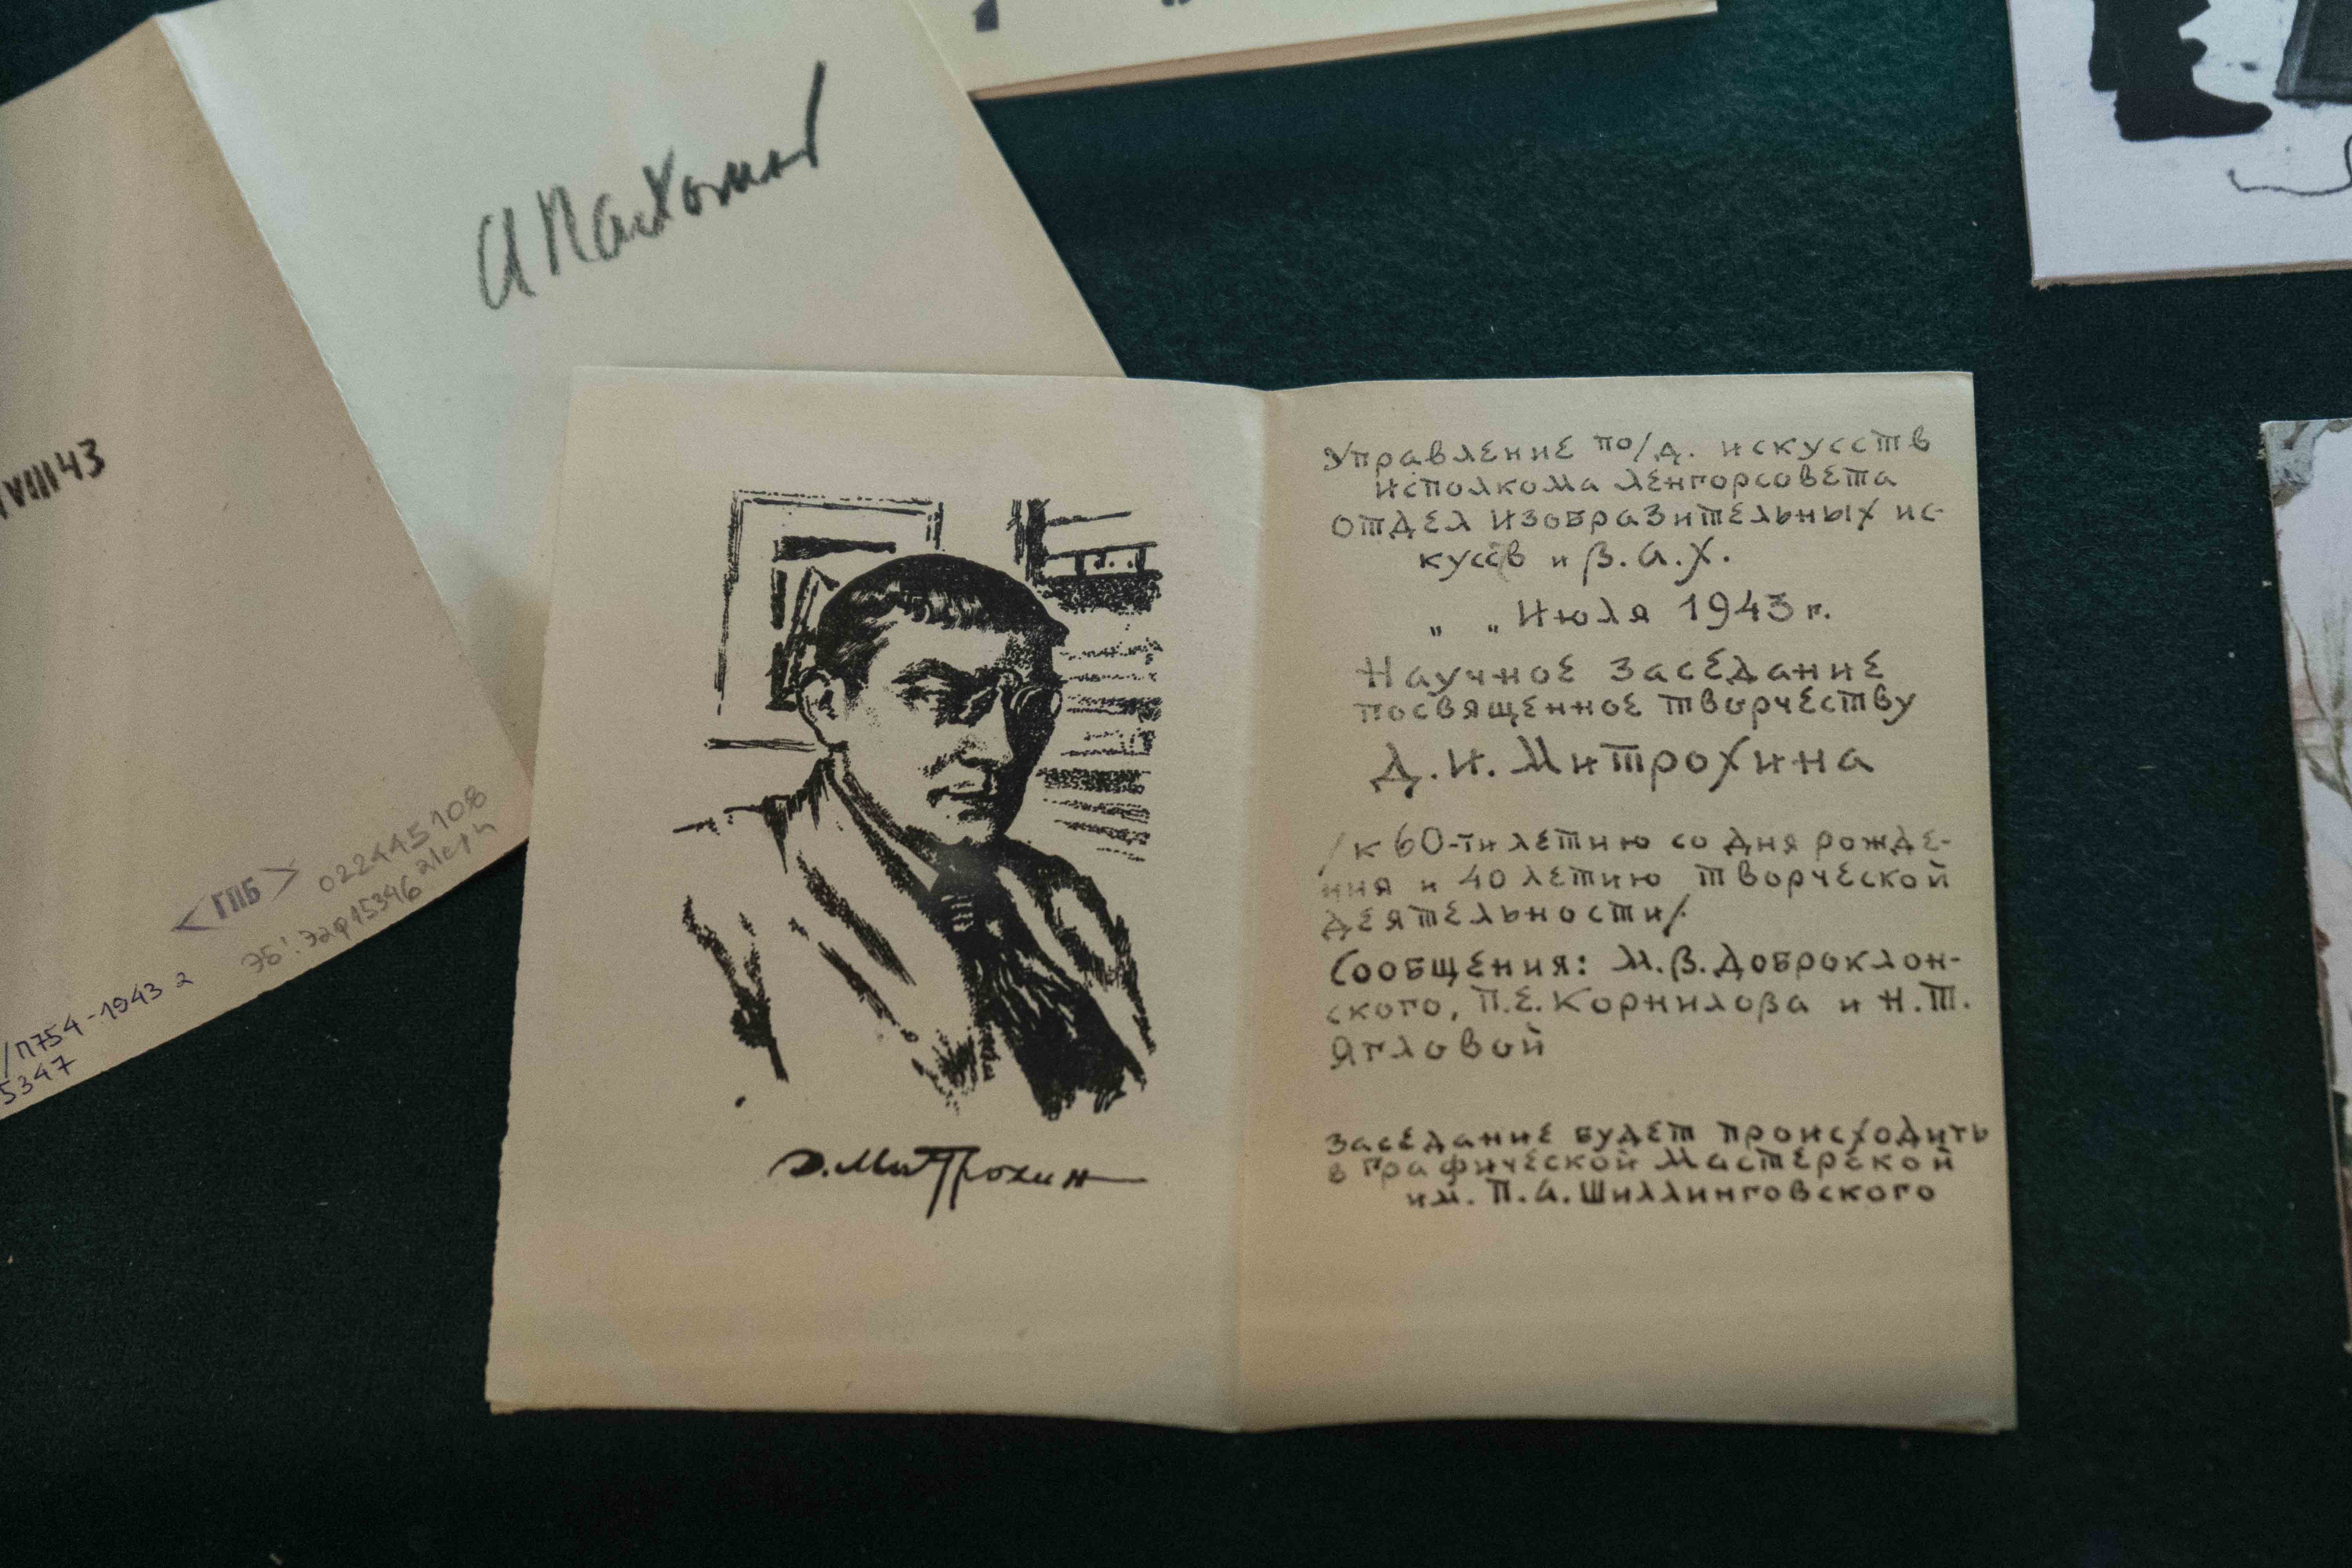 А Пахомов
VIII 43
<ГПБ> 022445108
ЭБ: Эгф15346
/П754-1943 2
5347
Д. Митрохин
Управление по/д. искусств
Исполкома Ленгорсовета
Отдел Изобразительных ис-
кусств и В.А.Х.
„ „ Июля 1943 г.
Научное Заседание
посвященное творчеству
Д.И. Митрохина
/к 60-ти летию со дня рожде-
ния и 40 летию творческой
деятельности/.
Сообщения: М.В. Доброклон-
ского, П.Е. Корнилова и Н.Т.
Ягловой
Заседание будет происходить
в Графической Мастерской
им. П.А. Шиллинговского